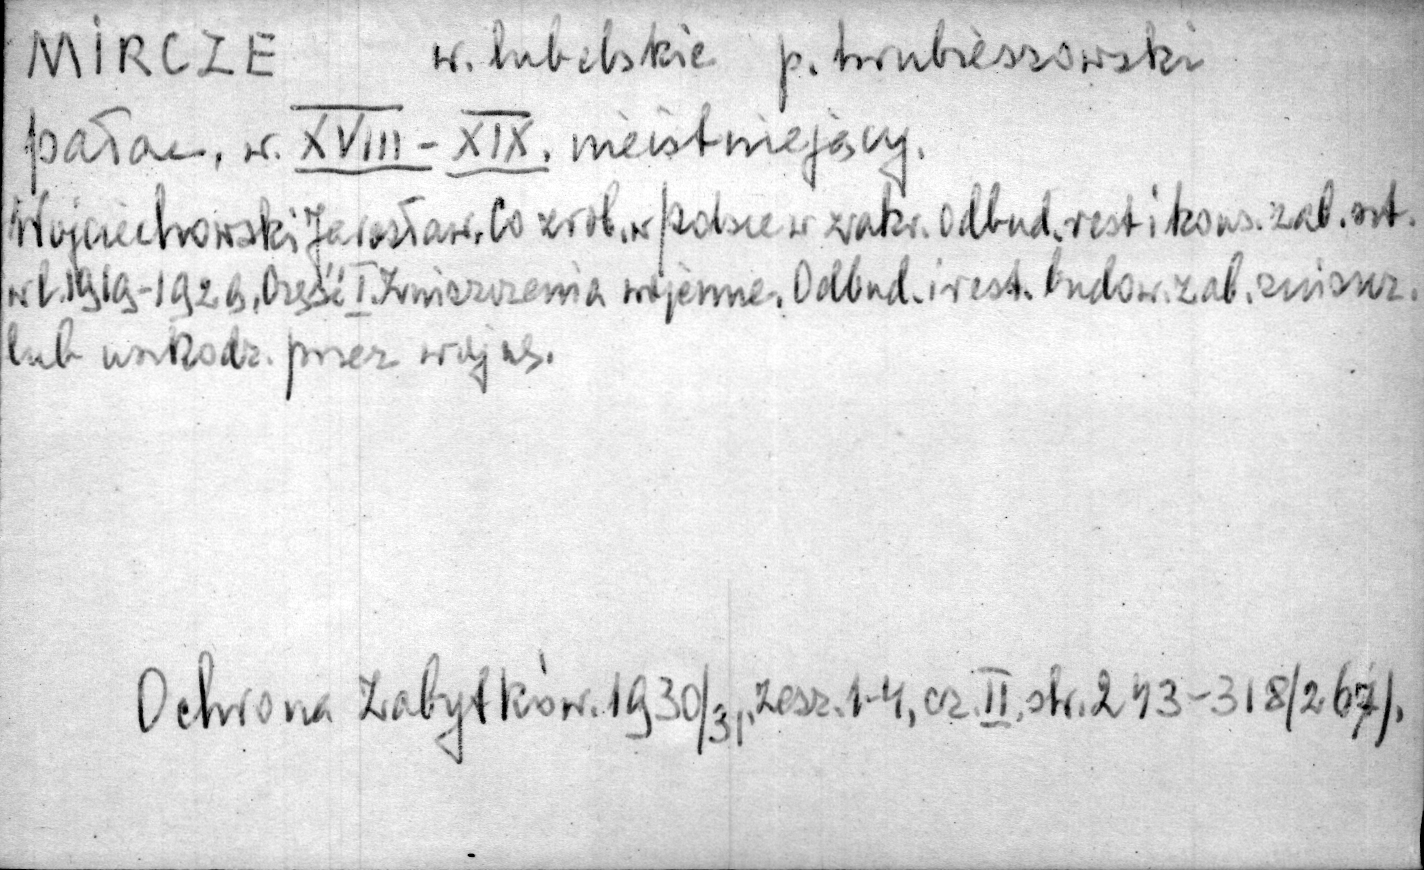 MIRCZE w. lubelskie p. hrubieszowski
pałac, w. XVIII - XIX. nieistniejący.
Wojciechowski Jarosław. Co zrob. w Polsce w zakr. odbud. rest i kons. zab. szt.
w l. 1919-1929. Część I. Zniszczenia wojenne. Odbud. i rest. budow. zab. zniszcz.
lub uszkodz. przez wojnę.
Ochrona Zabytków. 1930/31, zesz. 1-4, cz. II. str. 243-318/267/.